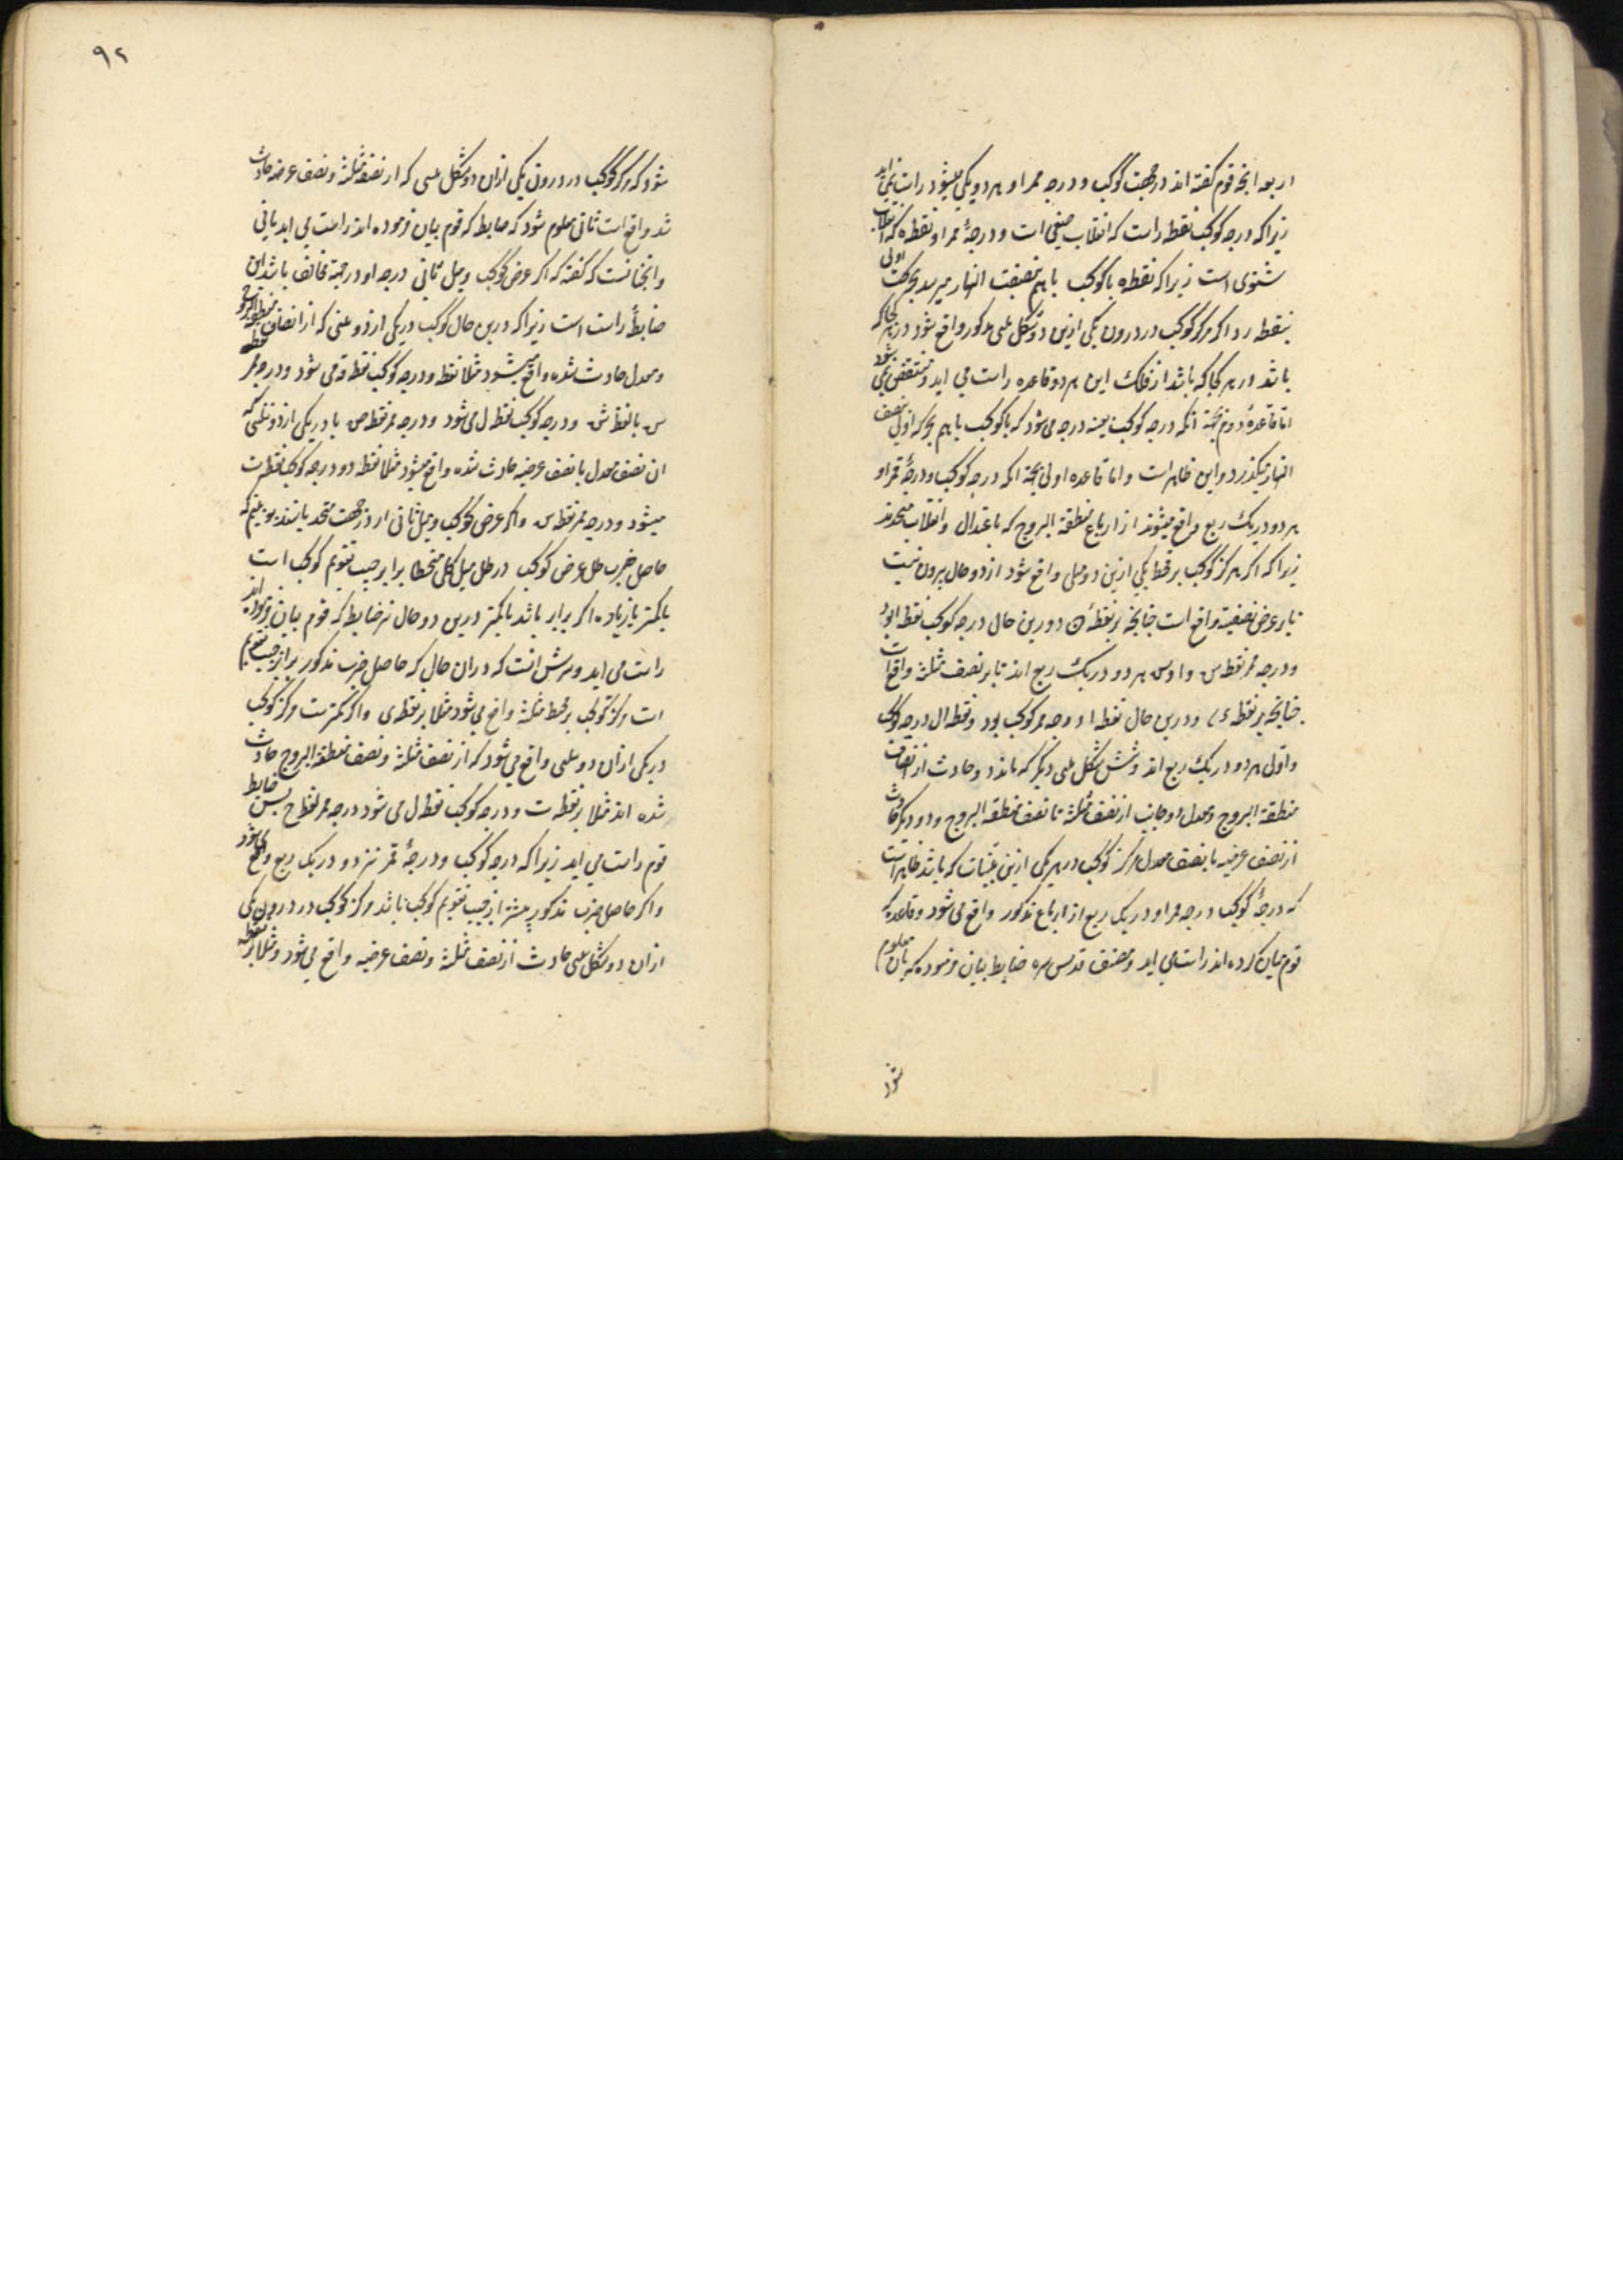 اربعه انچه قوم کفته اند در جهت کوکب و درجه ممر او هر دو یکی میشود راست نمی اید
زیرا که درجه کوکب نقطه راست که انقلاب صیفی است و درجهٔ ممر او نقطه ه که انقلاب
شتوی است زیرا که نقطه ه با کوکب با هم بنصف النهار میرسد بحرکت اولی
بنقطه ر و اکر مرکز کوکب در درون یکی ازین دو شکل مذکور واقع شود در هر کجا که
باشد و در هر کجا که باشد از فلک این هر دو قاعده راست می اید و منتقض نمی شود
اما قاعدهٔ دوم بجهة انکه درجه کوکب بعینه درجه می شود که با کوکب با هم بحرکت اولی بنصف
النهار میکذرد و این ظاهر است و اما قاعده اولی بجهة انکه درجه کوکب و درجهٔ ممر او
هر دو در یک ربع واقع میشوند از ارباع منطقة البروج که باعتدال و انقلاب متحدند
زیرا که اکر مرکز کوکب بر خط یکی ازین دو واقع شود از دو حال بیرون نیست
یا بر عرض نصفیه واقع است چنانچه بر نقطهٔ ن و درین حال درجه کوکب نقطه ا بود
و درجه ممر نقطه س و ا و س هر دو در یک ربع اند یا بر نصف مثلثه واقع است
چنانچه بر نقطه ی و درین حال نقطه ا درجه ممر کوکب بود و نقطه ال درجه کوکب
و ا و ل هر دو در یک ربع اند و شش شکل دیکر که ماند دو حادث از انصاف
منطقة البروج و معدل و دو جانب از نصف مثلثه تا نصف منطقة البروج و دو دیکر حادث
از نصف عرضیه با نصف معدل مرکز کوکب در هر یکی ازین مثلثات که باشد ظاهر است
که درجهٔ کوکب و درجه ممر او در یک ربع از ارباع مذکور واقع می شود و قاعده که
قوم بیان کرده اند راست می اید و مصنف قدس سره ضابطه بیان فرموده که بان معلوم
شود
۹۲
شود که مرکز کوکب در درون یکی ازان دو شکل که از نصف مثلثه و نصف عرضیه حادث
شد واقع است ثانی معلوم شود که ضابطه که قوم بیان فرموده اند راست می اید یا نی
و انچنانست که کفته که اکر عرض کوکب و میل ثانی درجه او در جهة مخالف باشد این
ضابطه راست است زیرا که درین حال کوکب در یکی از دو که از انصاف منطقة البروج
و معدل حادث شده واقع میشود مثلا نقطه و درجه کوکب نقطه می شود و درجه ممر نقطه
س یا نقطه ش و درجه کوکب نقطه ل می شود و درجه ممر نقطه ص یا در یکی از دو که
ان نصف معدل با نصف عرضیه حادث شده واقع میشود مثلا نقطه د و درجه کوکب نقطه ت
میشود و درجه ممر نقطه س و اکر عرض کوکب و میل ثانی او در جهت متحد باشند ببینیم که
حاصل ضرب ظل عرض کوکب در ظل میل کلی منحطا برابر جیب تقویم کوکب است
یا کمتر یا زیاده اکر برابر باشد یا کمتر درین دو حال نیز ضابطه که قوم بیان فرموده اند
راست می اید و سرش انست که در ان حال که حاصل ضرب مذکور برابر جیب تقویم
است مرکز کوکب بر محیط مثلثه واقع می شود مثلا بر نقطه ی و اکر کمتر است مرکز کوکب
در یکی ازان دو واقع می شود که از نصف مثلثه و نصف منطقة البروج حادث
شده اند مثلا بر نقطه ت و درجه کوکب نقطه ل می شود درجه ممر نقطه ح پس ضابطه
قوم راست می اید زیرا که درجه کوکب و درجهٔ ممر نیز دو در یک ربع واقع می شود
و اکر حاصل ضرب مذکور بیشتر از جیب تقویم کوکب باشد مرکز کوکب در درون یکی
ازان دو شکل حادث از نصف مثلثه و نصف عرضیه واقع می شود و مثلا بر نقطه